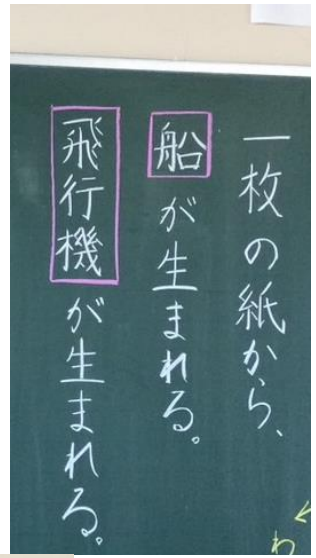 一枚の紙から、
船が生まれる。
飛行機が生まれる。
わ